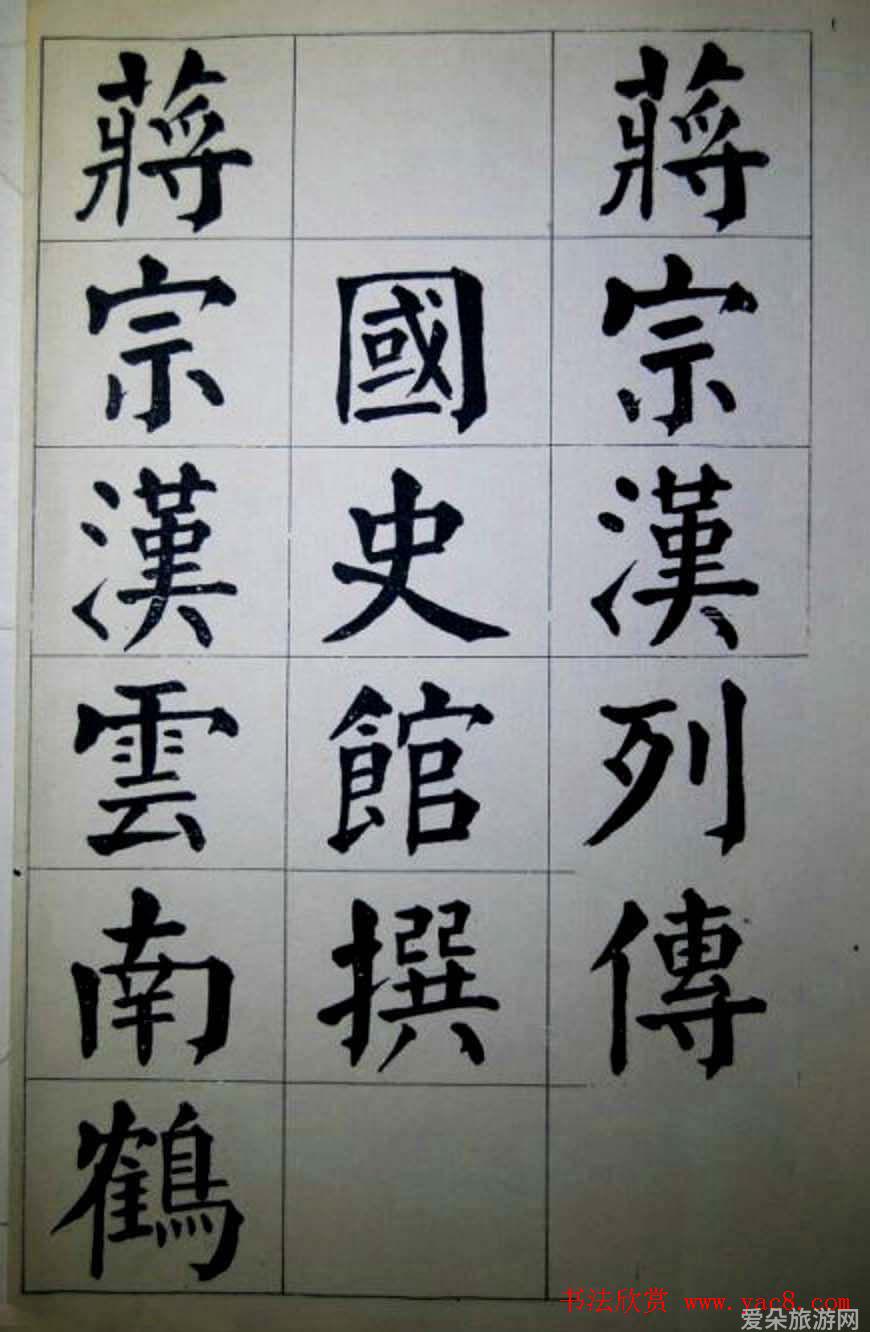 蔣宗漢列傳
國史館撰
蔣宗漢雲南鶴
书法欣赏 www.yac8.com
爱朵旅游网